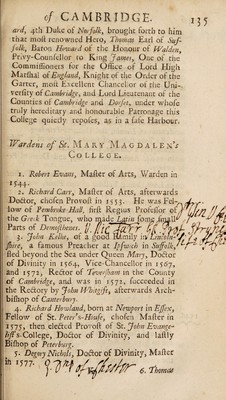 of CAMBRIDGE. 135
ard, 4th Duke of Norfolk, brought forth to him
that most renowned Hero, Thomas Earl of Suf-
folk, Baron Howard of the Honour of Walden,
Privy-Counsellor to King James, One of the
Commissioners for the Office of Lord High
Marshal of England, Knight of the Order of the
Garter, most Excellent Chancellor of the Uni-
versity of Cambridge, and Lord Lieutenant of the
Counties of Cambridge and Dorset, under whose
truly hereditary and honourable Patronage this
College quietly reposes, as in a safe Harbour.
Wardens of St. MARY MAGDALEN's
COLLEGE.
1. Robert Evans, Master of Arts, Warden in
1544.
2. Richard Carr, Master of Arts, afterwards
Doctor, chosen Provost in 1553. He was Fel-
low of Pembroke-Hall, first Regius Professor of
the Greek Tongue, who made Latin some small
Parts of Demosthenes.
3. John Kelke, of a good Family in Lincoln-
shire, a famous Preacher at Ipswich in Suffolk,
fled beyond the Sea under Queen Mary, Doctor
of Divinity in 1564, Vice-Chancellor in 1567,
and 1572, Rector of Teversham in the County
of Cambridge, and was in 1572, succeeded in
the Rectory by John Whitgift, afterwards Arch-
bishop of Canterbury.
4. Richard Howland, born at Newport in Essex,
Fellow of St. Peter's-House, chosen Master in
1575, then elected Provost of St. John Evange-
list's-College, Doctor of Divinity, and lastly
Bishop of Peterburg.
5. Degory Nichols, Doctor of Divinity, Master
in 1577.
6. Thomas